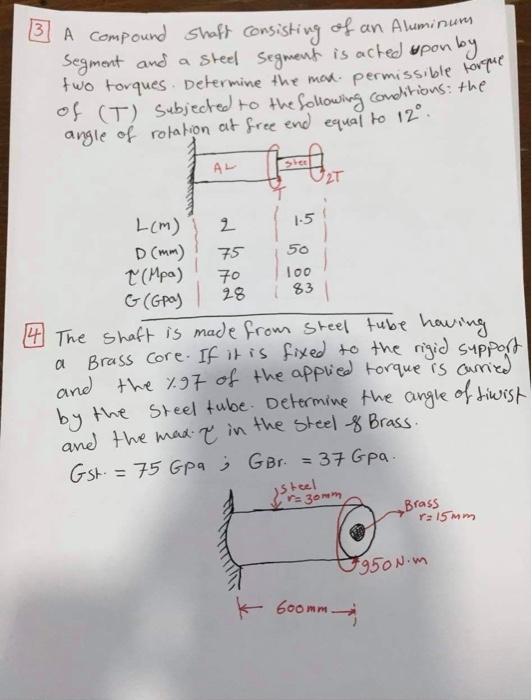 3 A compound shaft consisting of an Aluminum
segment and a steel segment is acted upon by
two torques. Determine the max. permissible torque
of (T) subjected to the following conditions: the
angle of rotation at free end equal to 12°.
AL
Steel
T
2T
L(m) 2 1.5
D(mm) 75 50
τ(Mpa) 70 100
G(GPa) 28 83
4 The shaft is made from steel tube having
a Brass core. If it is fixed to the rigid support
and the %97 of the applied torque is carried
by the steel tube. Determine the angle of tiwist
and the max. τ in the steel & Brass.
Gst. = 75 Gpa ; GBr. = 37 Gpa.
steel
r=30mm
Brass
r=15mm
950N.m
600mm